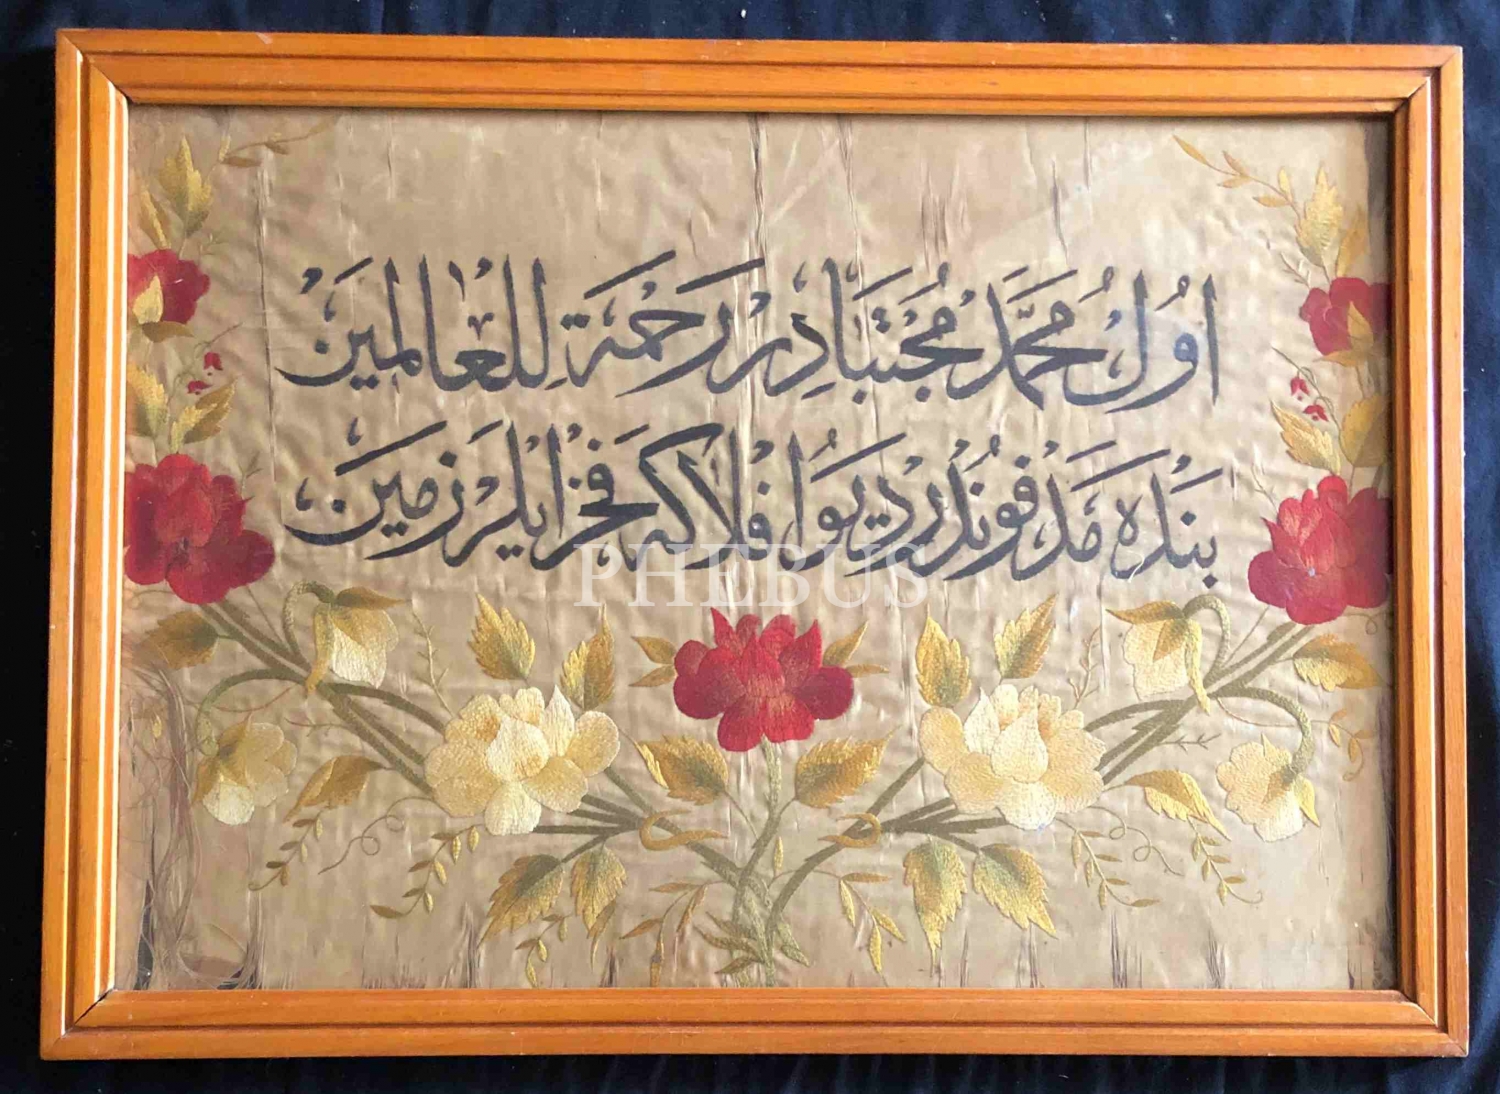 اوُلْ مُحَمَّدْ مُجْتَبَادِرْ رَحْمَةً لِلْعَالَمِينَ
بَنْدَه مَدْفُونْدُرْ دِيوُ افْلاكه فَخْرْ ايلَرْ زَمِينْ
PHEBUS